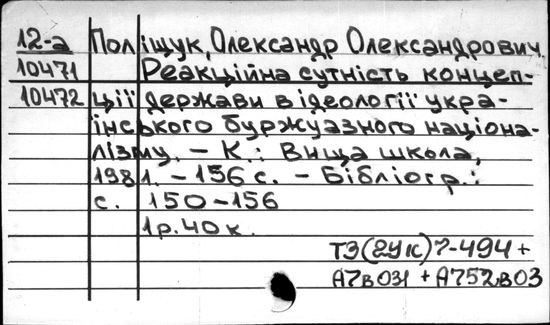 12-а Поліщук, Олександр Олександрович
10471 Реакційна сутність концеп-
10472 ції держави в ідеології укра-
їнського буржуазного націона-
лізму. – К.: Вища школа,
1981. – 156 с. – Бібліогр.:
с. 150-156
1р. 40к.
ТЗ(2Ук)7-494+
А7в031 + А752в03